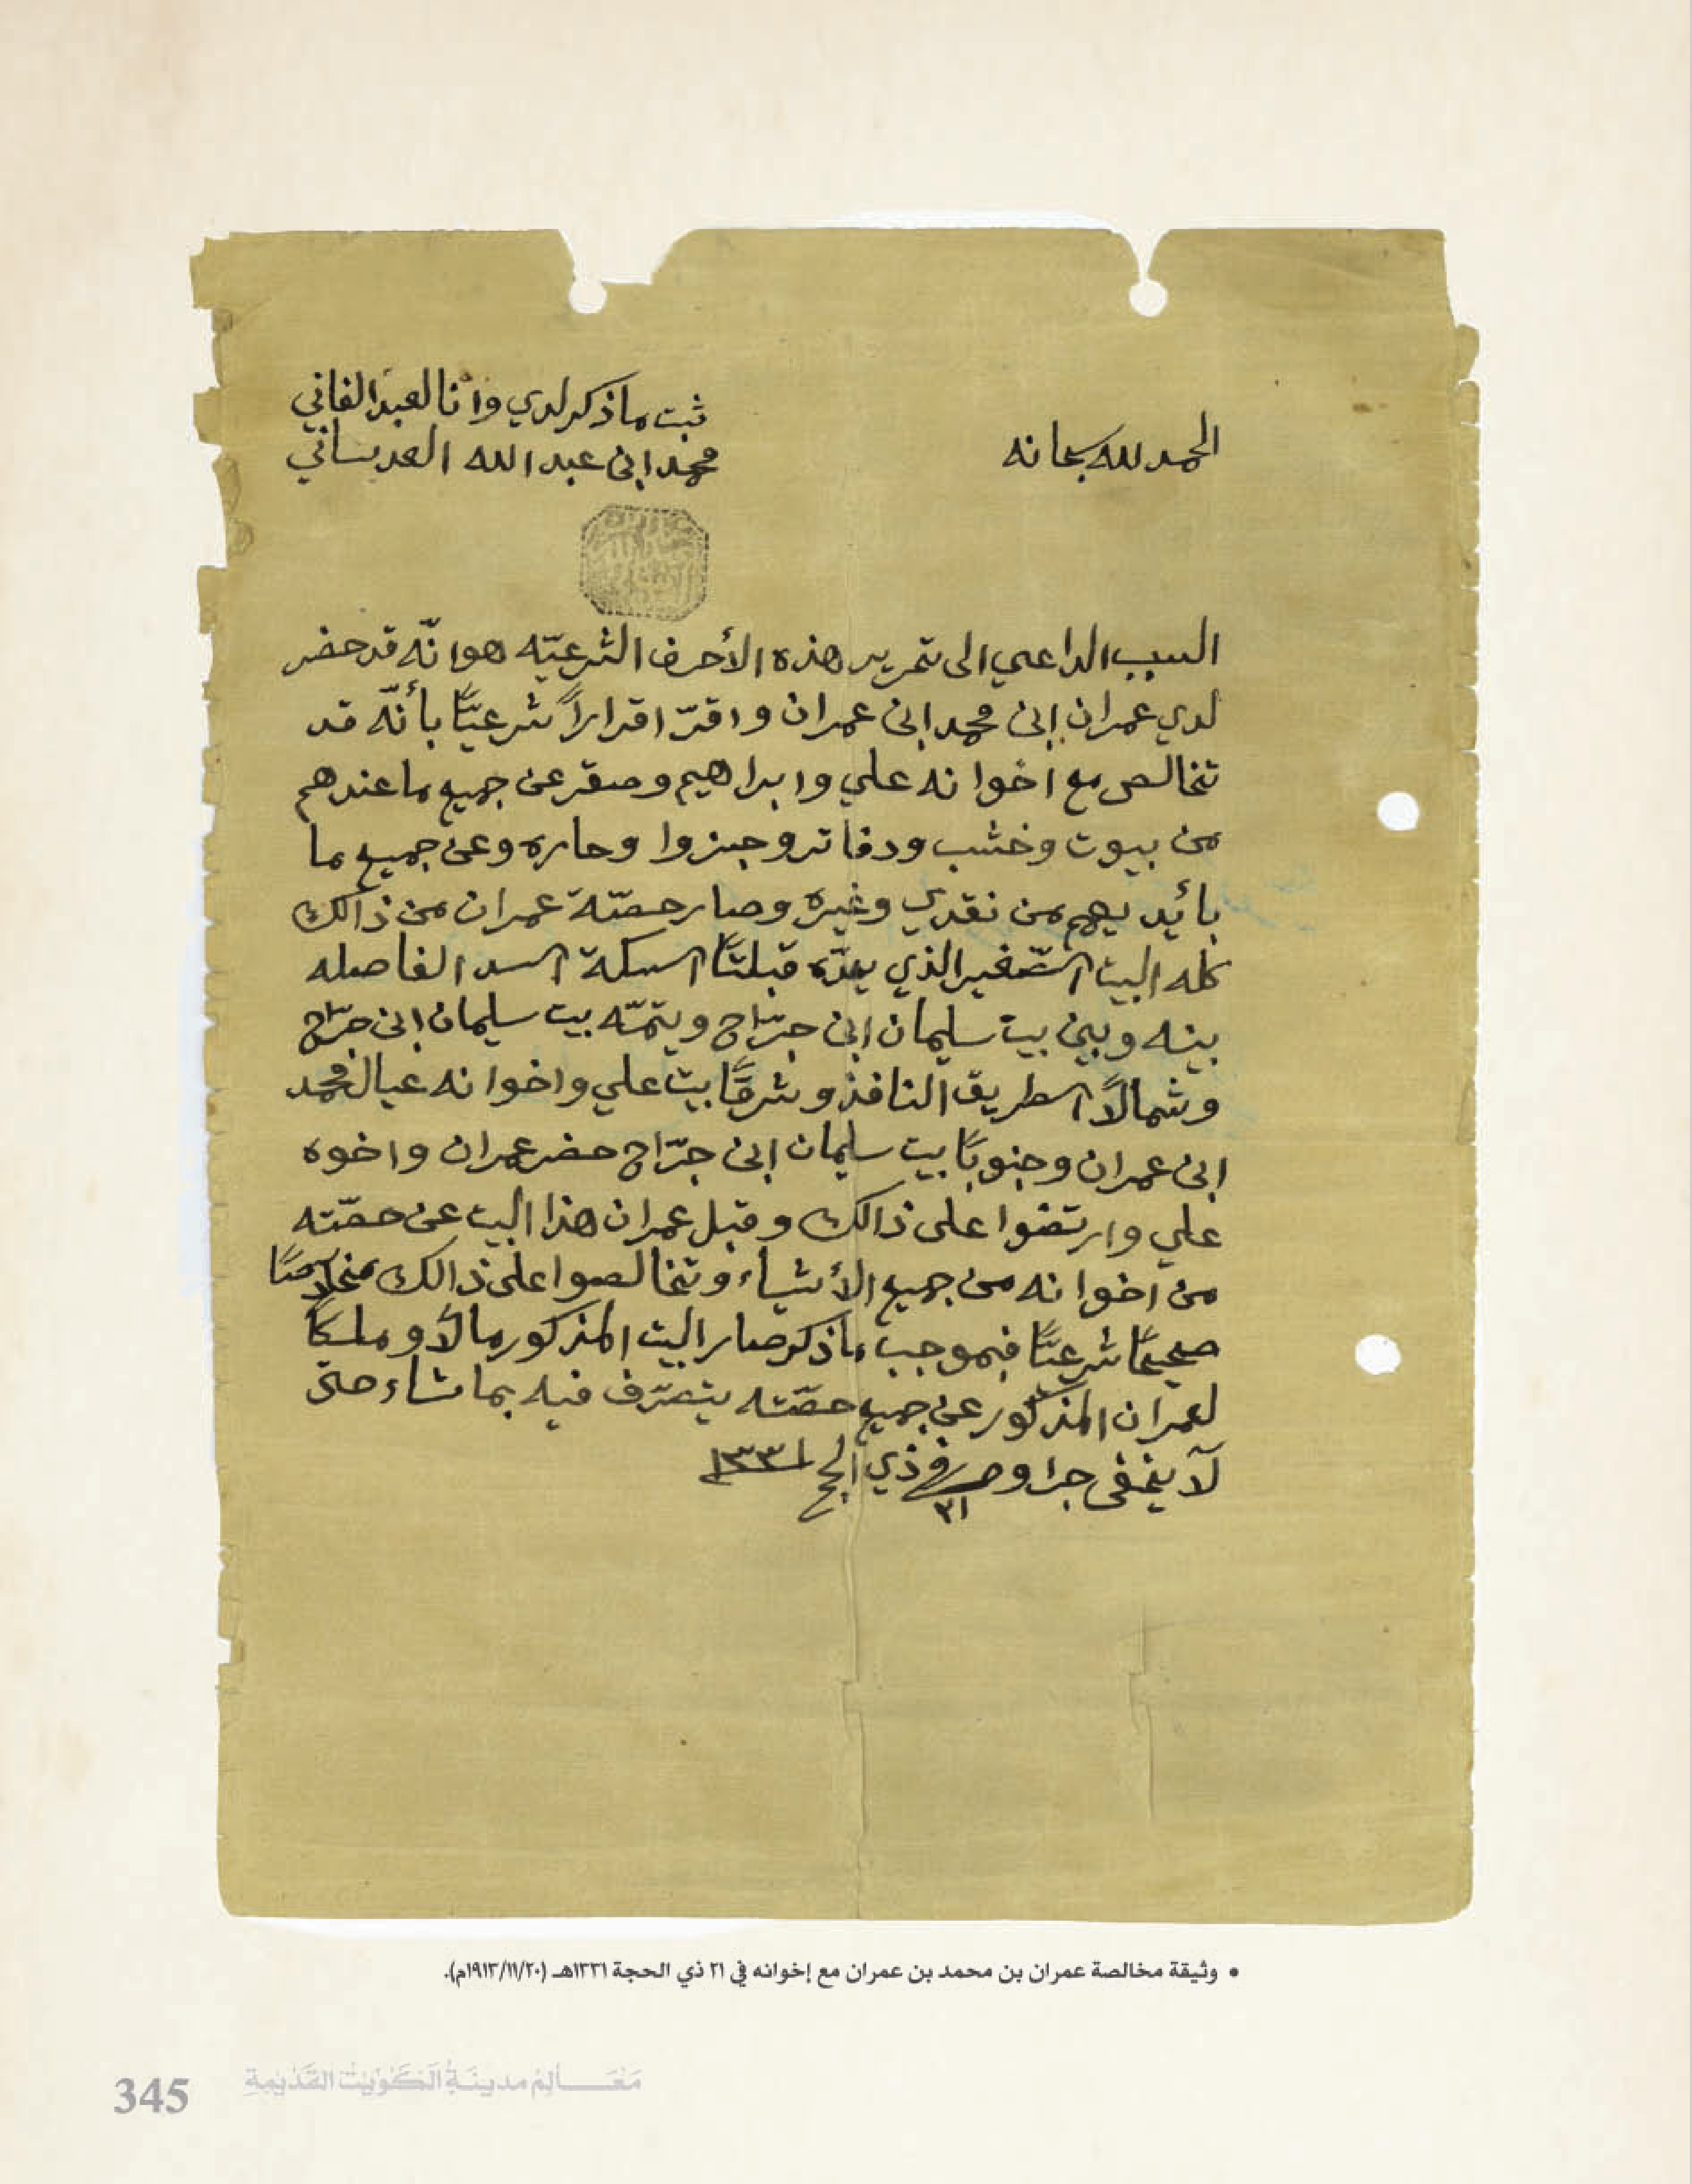 الحمد لله سبحانه
ثبت ما ذكر لدي وانا العبد الفاني
محمد ابن عبد الله العدساني
السبب الداعي الى تحرير هذه الأحرف الشرعيّه هو انّه قد حضر
لدي عمران ابن محمد ابن عمران واقرّ اقراراً شرعيّاً بأنّه قد
تخالص مع اخوانه علي وابراهيم وصقر عن جميع ما عندهم
من بيوت وخشب ودفاتر وجنزوا وحاره وعن جميع ما
بأيديهم من نقدي وغيره وصار حصّة عمران من ذالك
كله البيت الصّغير الذي يحدّه قبلتاً السكة السد الفاصله
بينه وبين بيت سليمان ابن جرّاح ويتمّه بيت سليمان ابن جرّاح
وشمالاً الطريق النافذ وشرقاً بيت علي واخوانه عيال محمد
ابن عمران وجنوباً بيت سليمان ابن جرّاح حضر عمران واخوه
علي وارتضوا على ذالك وقبل عمران هذا البيت عن حصّته
من اخوانه من جميع الأشياء وتخالصوا على ذالك مخالصتاً
صحيحاً شرعيّاً فبموجب ما ذكر صار البيت المذكور مالاً وملكاً
لعمران المذكور عن جميع حصّته يتصرّف فيه بما شاء حتى
لا يخفى جرا وحرر في ٢١ ذي الحج ١٣٣١
• وثيقة مخالصة عمران بن محمد بن عمران مع إخوانه في ٢١ ذي الحجة ١٣٣١هـ (١٩١٣/١١/٢٠م).
345 مَعَـــالِمُ مدينَةِ الكُوَيْتِ القَدِيمَةِ